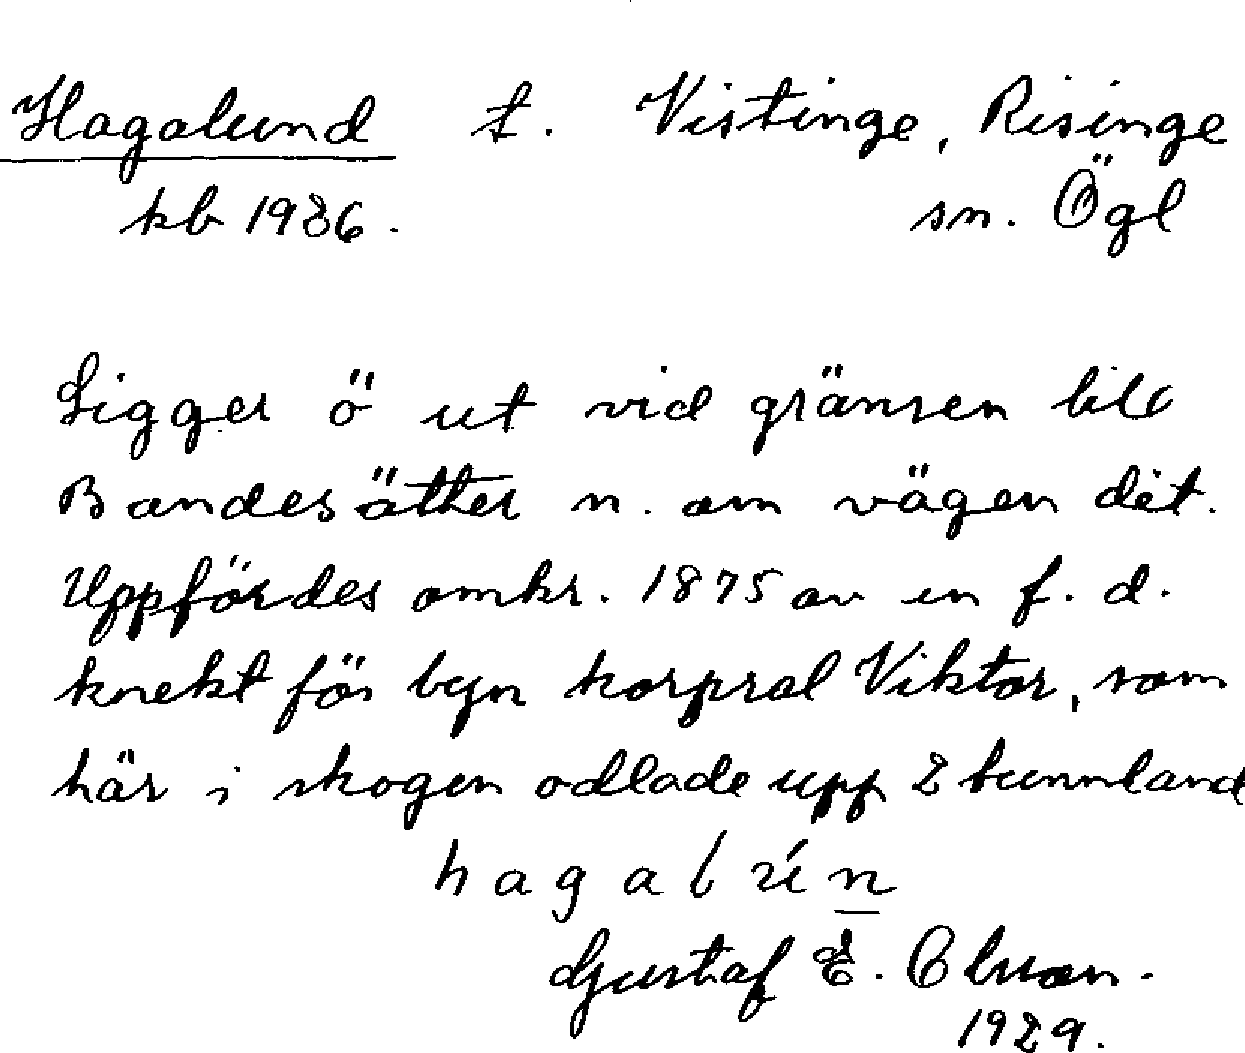 Hagalund t. Vistinge, Risinge
kb 1926. sn. Ögl
Ligger ö ut vid gränsen till
Bandesätter n. om vägen dit.
Uppfördes omkr. 1875 av en f. d.
knekt för byn korpral Viktor, som
här i skogen odlade upp 2 tunnland
hagalún
Gustaf E. Olsson.
1929.